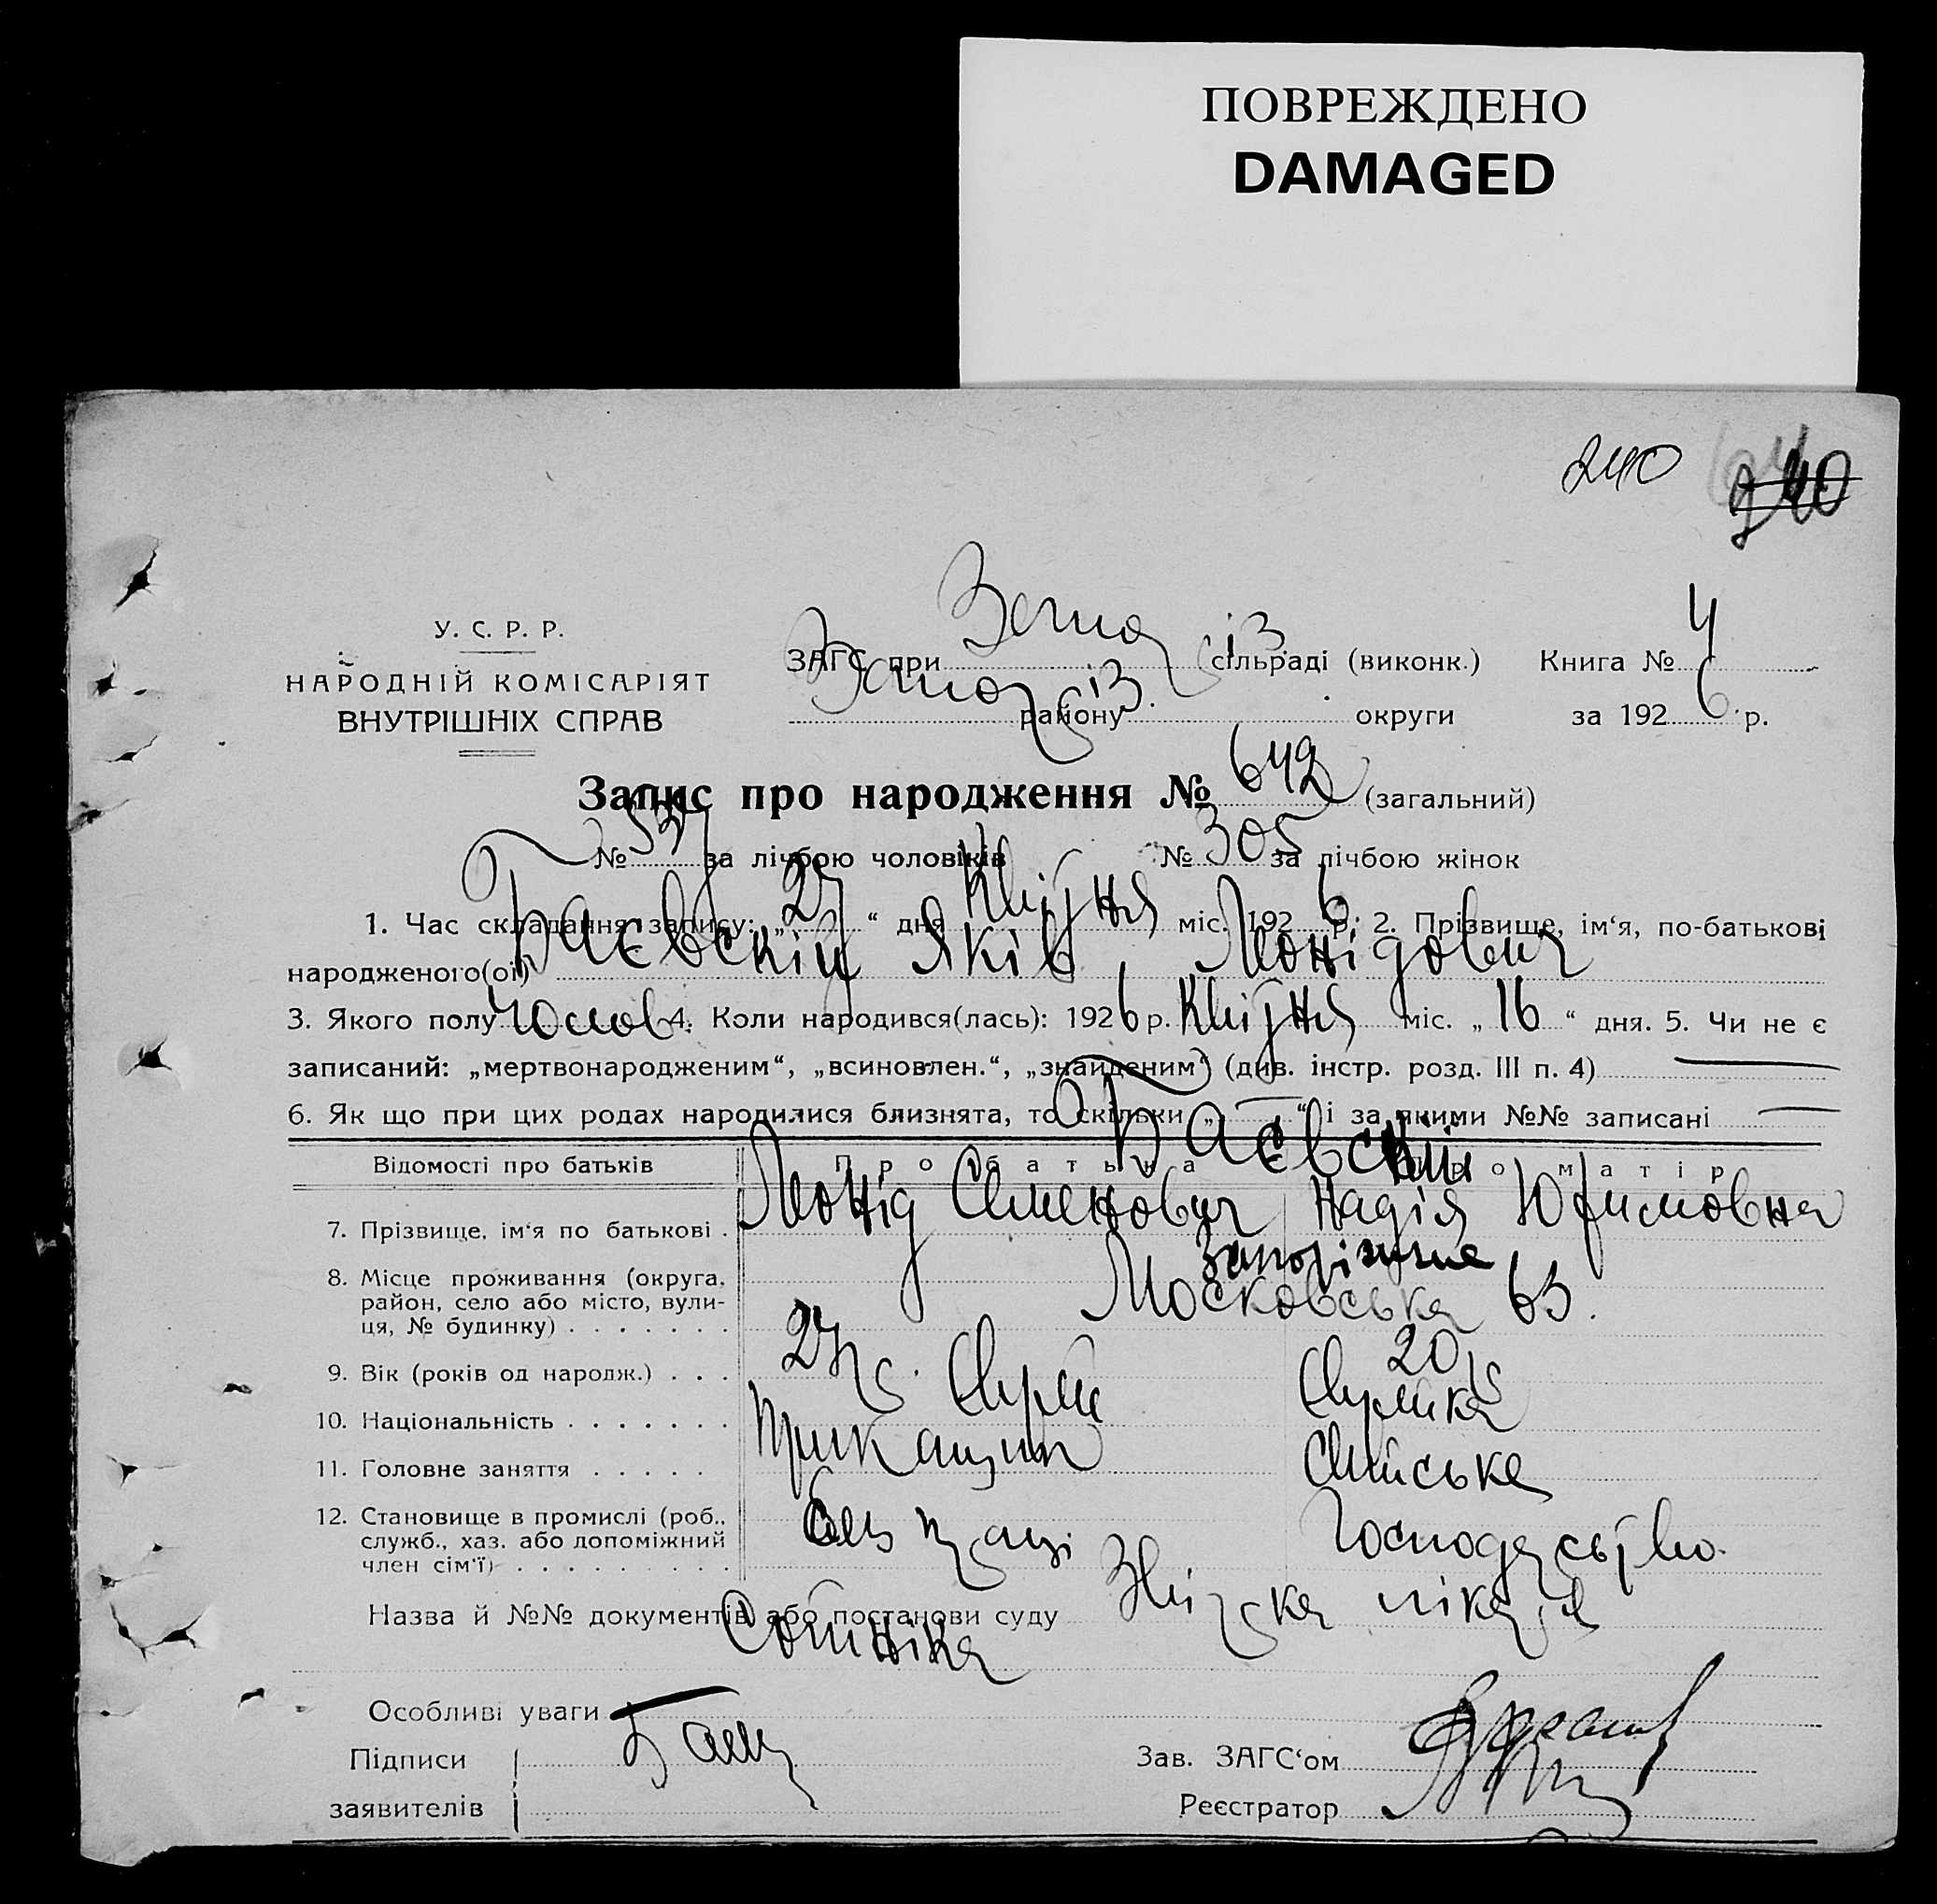 ПОВРЕЖДЕНО
DAMAGED
240
240
У. С. Р. Р.
НАРОДНІЙ КОМІСАРІЯТ
ВНУТРІШНІХ СПРАВ
ЗАГС при сільраді (виконк.) Книга № 4
району округи за 1926 р.
Запис про народження № 642 (загальний)
№ 337 за лічбою чоловіків № 305 за лічбою жінок
1. Час складання запису: „27“ дня Квітня міс. 1926 р. 2. Прізвище, ім‘я, по-батькові
народженого(ої) Баєвскій Яків Леонідович
3. Якого полу Чолов 4. Коли народився(лась): 1926 р. Квітня міс. „16“ дня. 5. Чи не є
записаний: „мертвонародженим“, „всиновлен.“, „знайденим“ (див. інстр. розд. III п. 4) —
6. Як що при цих родах народилися близнята, то скільки „—“ і за якими №№ записані —
Баєвскій
Відомості про батьків Про батька Про матір
7. Прізвище, ім‘я по батькові . Леонід Семенович Надія Юхимовна
8. Місце проживання (округа, район, село або місто, вулиця, № будинку) . . . . . . . Запоріжже
Московська 63.
9. Вік (років од народж.) . . . 27 р. 20 р.
10. Національність . . . . . . . Євреї Єврейка
11. Головне заняття . . . . . Прикащик Сільське
12. Становище в промислі (роб., служб., хаз. або допоміжний член сім‘ї) . . . . . . . . . Без праці Господарство.
Назва й №№ документів або постанови суду Звістка лікаря
Сотніка
Особливі уваги
Підписи
заявителів
Зав. ЗАГС‘ом
Реєстратор